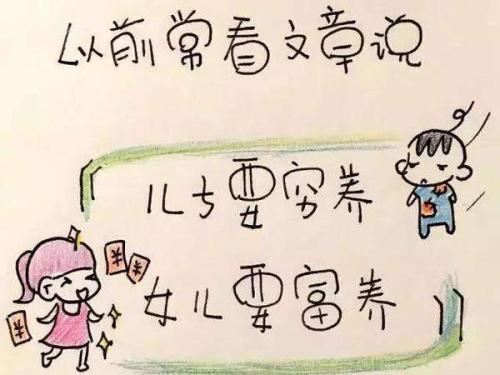 以前常看文章说
儿子要穷养
女儿要富养
¥
¥
¥